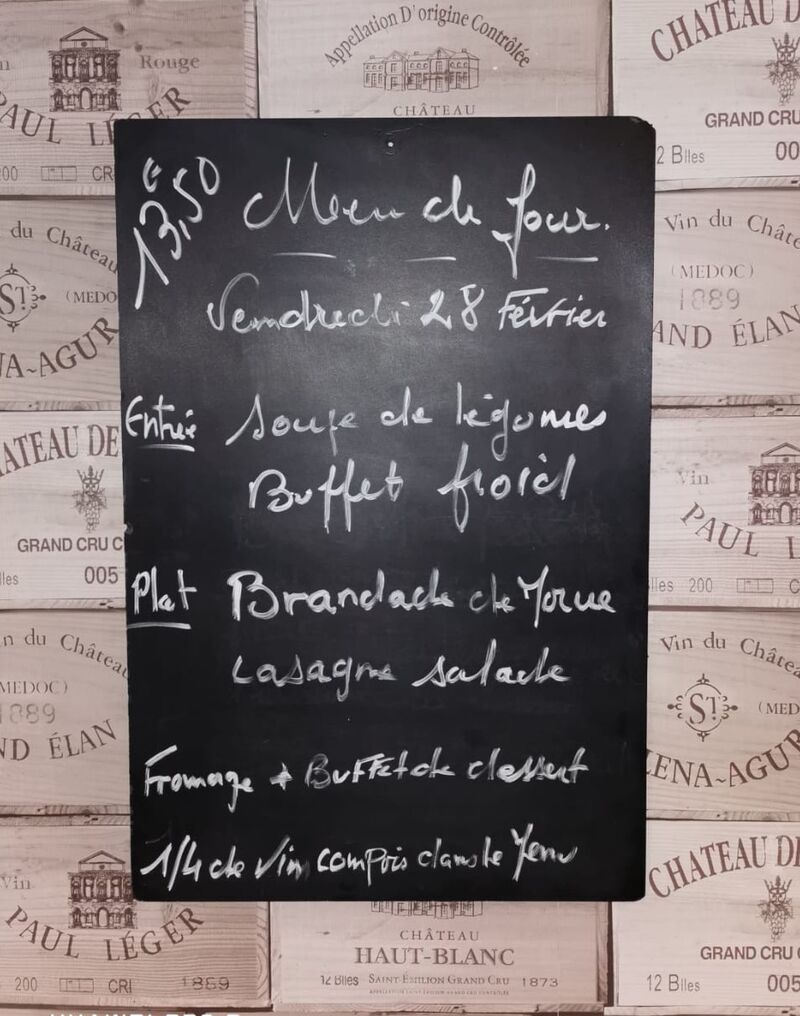 €
13,50
Menu du Jour.
Vendredi 28 Février
Entrée Soupe de légumes
Buffet froid
Plat Brandade de Morue
Lasagne salade
Fromage + Buffet de dessert
1/4 de Vin compris dans le Menu
Rouge
PAUL LÉGER
200 CR
Appellation D'origine Contrôlée
CHÂTEAU
CHATEAU D
GRAND CRU
2 Blles 00
du Château
ST (MEDO
NA~AGUR
Vin du Châtea
(MEDOC)
1889
AND ÉLAN
ATEAU DE
GRAND CRU C
lles 005
Vin
PAUL L
lles 200 CRI
n du Château
MEDOC)
1889
ND ÉLAN
Vin du Châtea
ST (MED
LENA~AGU
Vin
PAUL LÉGER
200 CRI 1869
CHÂTEAU
HAUT-BLANC
12 Blles SAINT-ÉMILION GRAND CRU 1873
CHATEAU DE
GRAND CRU C
12 Blles 005